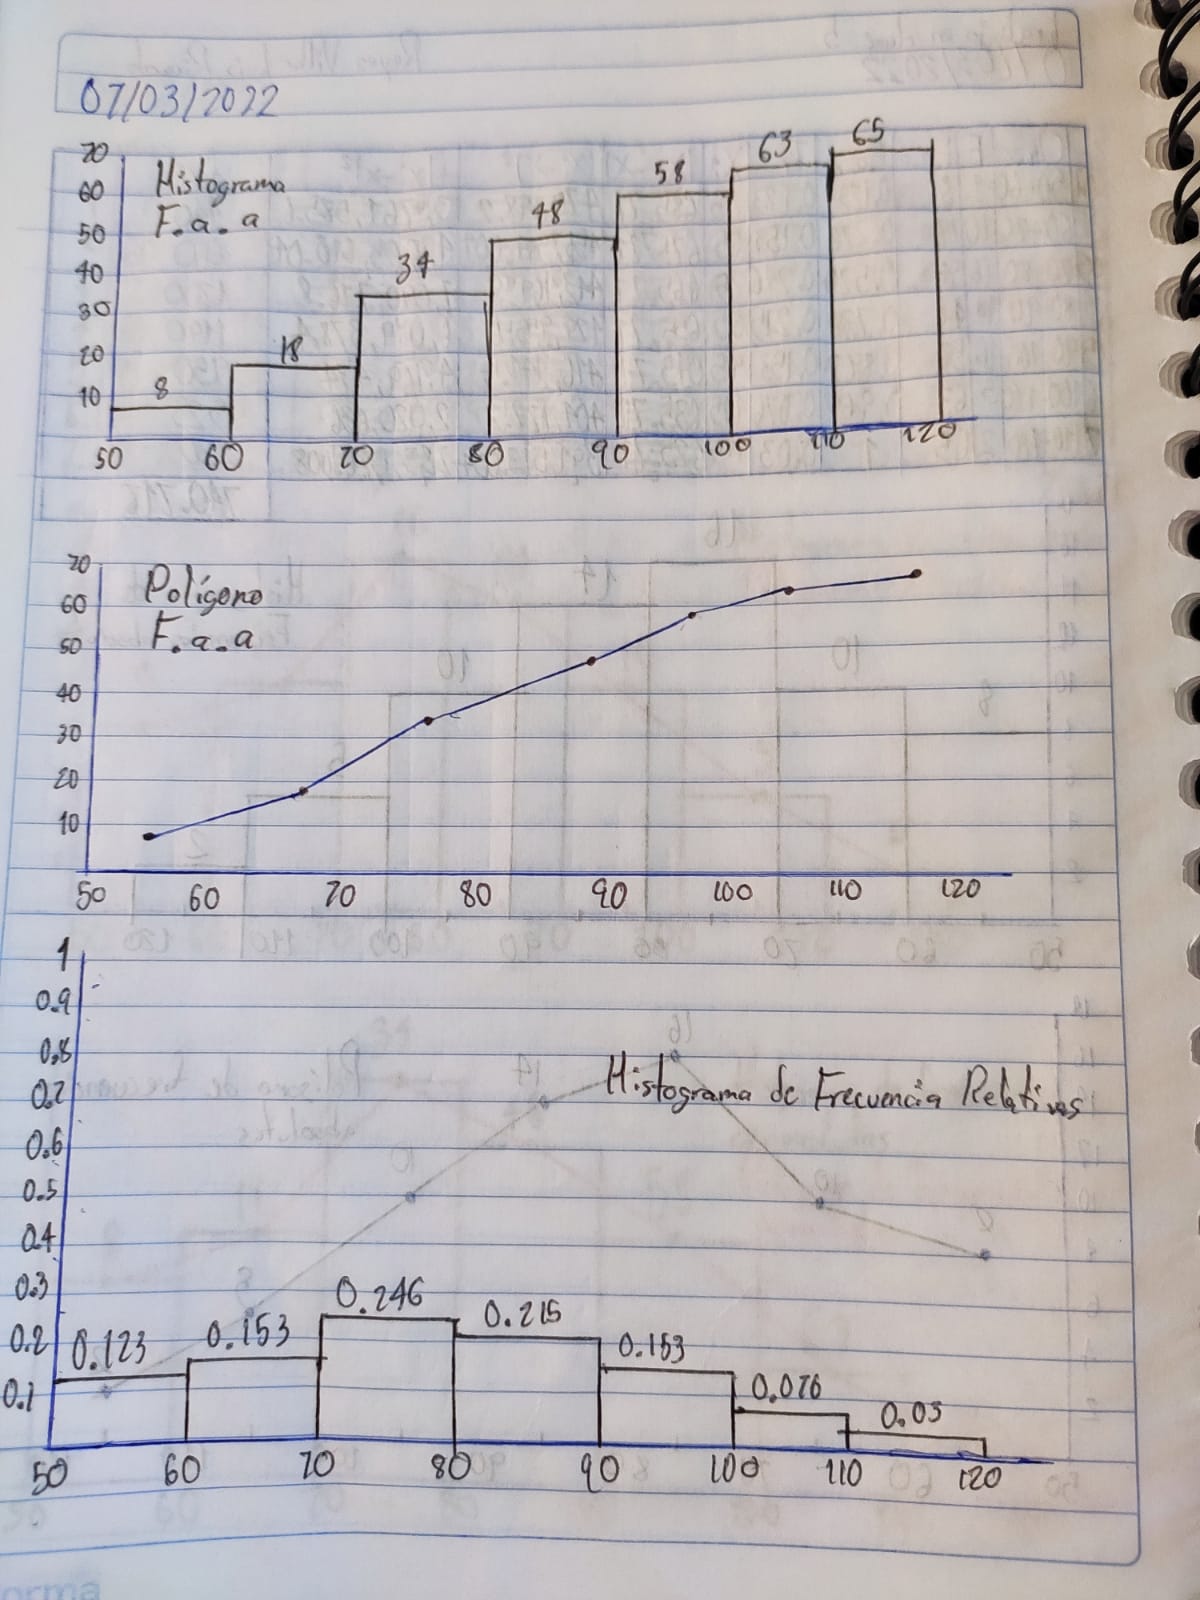 07/03/2022
Histograma
F.a.a
70
60
50
40
30
20
10
8
18
34
48
58
63
65
50 60 70 80 90 100 110 120
Polígono
F.a.a
70
60
50
40
30
20
10
50 60 70 80 90 100 110 120
Histograma de Frecuencia Relativas
1
0.9
0.8
0.7
0.6
0.5
0.4
0.3
0.2
0.1
0.123
0.153
0.246
0.215
0.153
0.076
0.03
50 60 70 80 90 100 110 120
orma